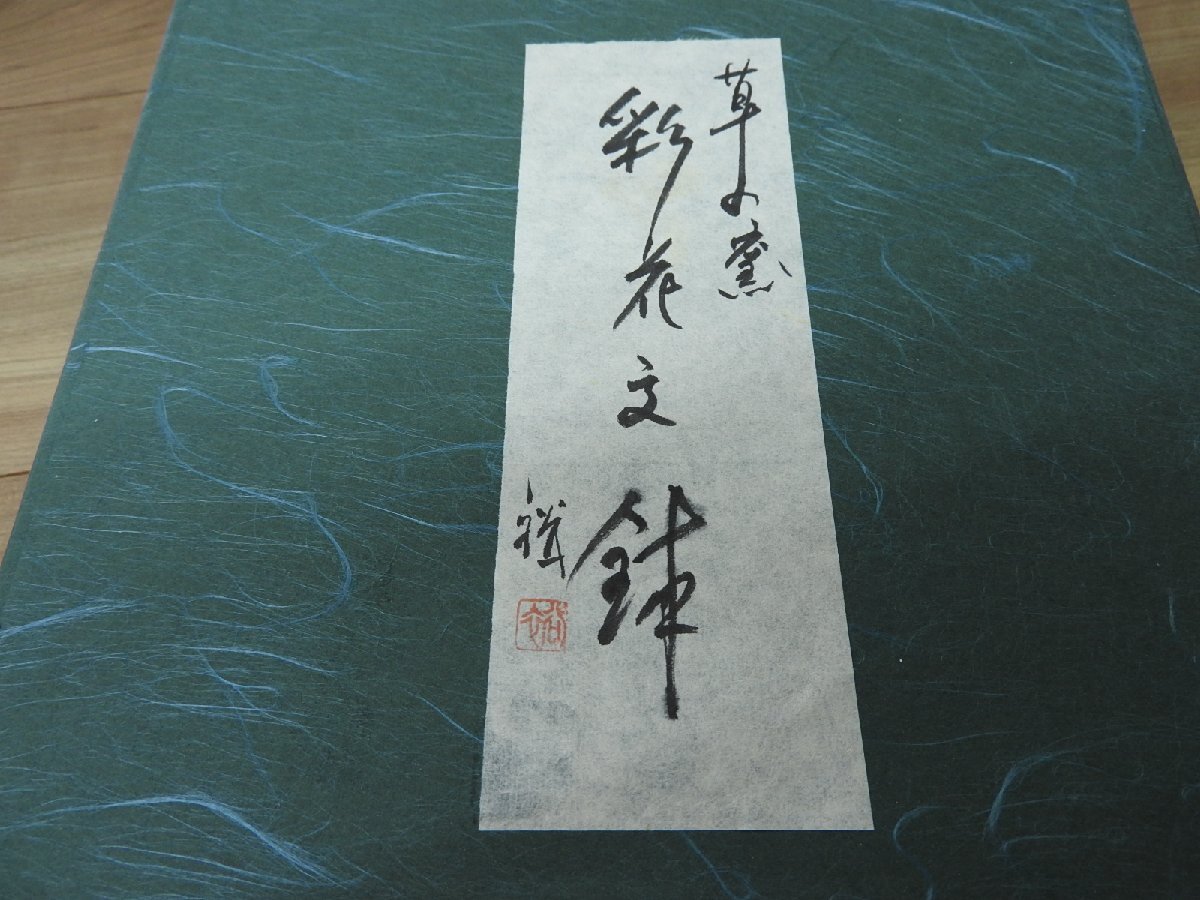 草の窯
彩花文鉢